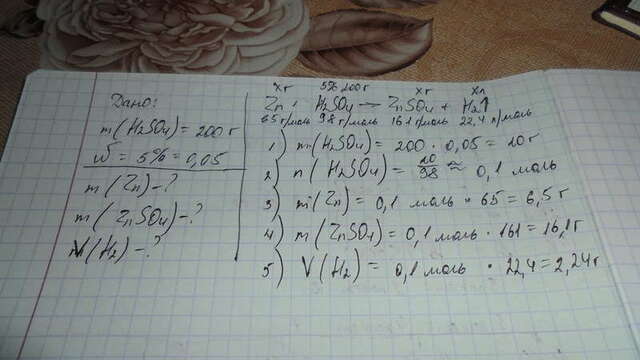 Дано:
m(H2SO4) = 200 г
ω = 5% = 0,05
m(Zn) - ?
m(ZnSO4) - ?
V(H2) - ?
xг 5% 200г xг xл
Zn + H2SO4 → ZnSO4 + H2↑
65 г/моль 98 г/моль 161 г/моль 22,4 л/моль
1) m(H2SO4) = 200 · 0,05 = 10 г
2) n(H2SO4) = 10/98 ≈ 0,1 моль
3) m(Zn) = 0,1 моль · 65 = 6,5 г
4) m(ZnSO4) = 0,1 моль · 161 = 16,1 г
5) V(H2) = 0,1 моль · 22,4 = 2,24 г